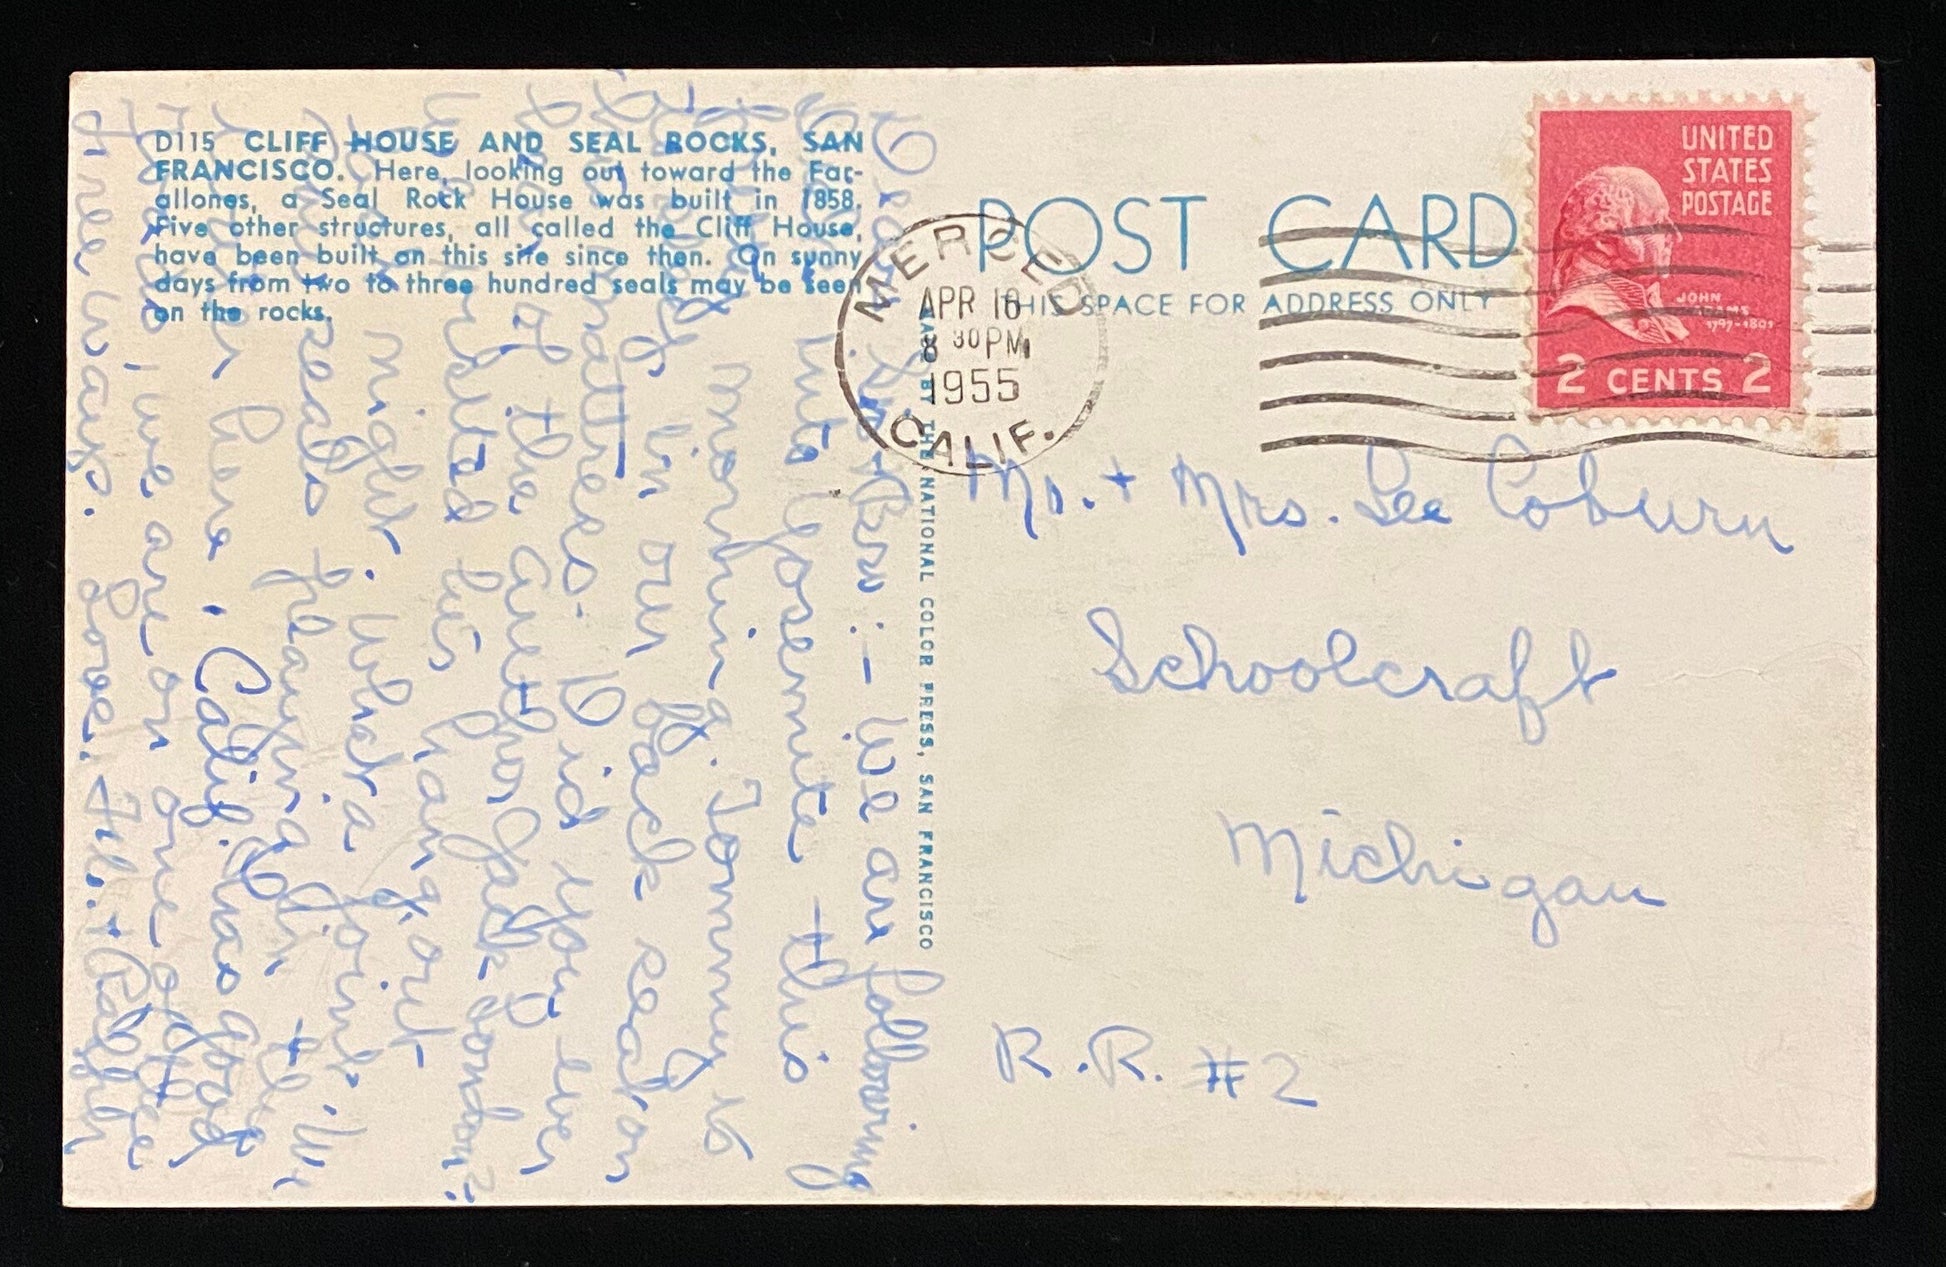 D115 CLIFF HOUSE AND SEAL ROCKS, SAN
FRANCISCO. Here, looking out toward the Far-
allones, a Seal Rock House was built in 1858.
Five other structures, all called the Cliff House,
have been built on this site since then. On sunny
days from two to three hundred seals may be seen
on the rocks.
Dear :- We are following
into Yosemite this
morning. Tommy is
in our back seat on
mattress. Did you ever
of the Author Jack London?
visited his hang out
night. a joint. We
seals playing in the
here. Calif. has good
we are on one of the
free ways. Love. + Ralph
MADE BY THE NATIONAL COLOR PRESS, SAN FRANCISCO
POST CARD
THIS SPACE FOR ADDRESS ONLY
MERCED
APR 18
8 30 PM
1955
CALIF.
UNITED
STATES
POSTAGE
JOHN
ADAMS
1797-1801
2 CENTS 2
Mr. + Mrs. Lee Coburn
Schoolcraft
Michigan
R.R. #2